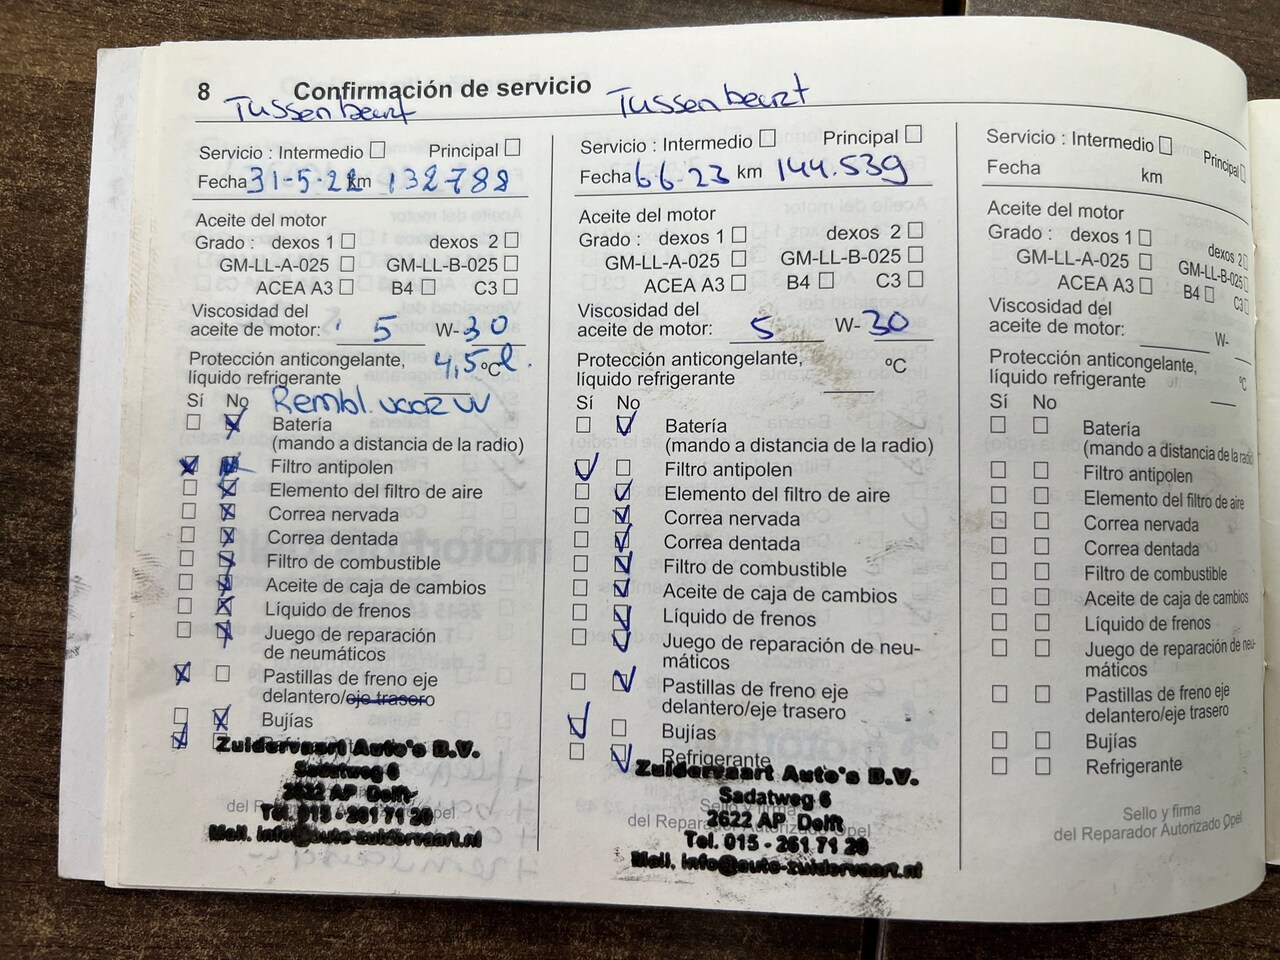 8 Confirmación de servicio
Tussenbeurt
Servicio : Intermedio Principal
Fecha 31-5-22 km 132788
Aceite del motor
Grado : dexos 1 dexos 2
GM-LL-A-025 GM-LL-B-025
ACEA A3 B4 C3
Viscosidad del
aceite de motor: 5 W- 30
Protección anticongelante, 4,5 l. °C
líquido refrigerante
Sí No Rembl. voor VV
Batería
(mando a distancia de la radio)
Filtro antipolen
Elemento del filtro de aire
Correa nervada
Correa dentada
Filtro de combustible
Aceite de caja de cambios
Líquido de frenos
Juego de reparación
de neumáticos
Pastillas de freno eje
delantero/eje trasero
Bujías
Zuidervaart Auto's B.V.
Sadatweg 6
2622 AP Delft
del Reparador Autorizado Opel
Tel. 015 - 261 71 20
Mail. info@auto-zuidervaart.nl
Tussenbeurt
Servicio : Intermedio Principal
Fecha 6-6-23 km 144.539
Aceite del motor
Grado : dexos 1 dexos 2
GM-LL-A-025 GM-LL-B-025
ACEA A3 B4 C3
Viscosidad del
aceite de motor: 5 W- 30
Protección anticongelante, °C
líquido refrigerante
Sí No
Batería
(mando a distancia de la radio)
Filtro antipolen
Elemento del filtro de aire
Correa nervada
Correa dentada
Filtro de combustible
Aceite de caja de cambios
Líquido de frenos
Juego de reparación de neu-
máticos
Pastillas de freno eje
delantero/eje trasero
Bujías
Refrigerante
Zuidervaart Auto's B.V.
Sadatweg 6
Sello y firma
2622 AP Delft
del Reparador Autorizado Opel
Tel. 015 - 261 71 20
Mail. info@auto-zuidervaart.nl
Servicio : Intermedio Principal
Fecha km
Aceite del motor
Grado : dexos 1 dexos 2
GM-LL-A-025 GM-LL-B-025
ACEA A3 B4 C3
Viscosidad del
aceite de motor: W-
Protección anticongelante, °C
líquido refrigerante
Sí No
Batería
(mando a distancia de la radio)
Filtro antipolen
Elemento del filtro de aire
Correa nervada
Correa dentada
Filtro de combustible
Aceite de caja de cambios
Líquido de frenos
Juego de reparación de neu-
máticos
Pastillas de freno eje
delantero/eje trasero
Bujías
Refrigerante
Sello y firma
del Reparador Autorizado Opel